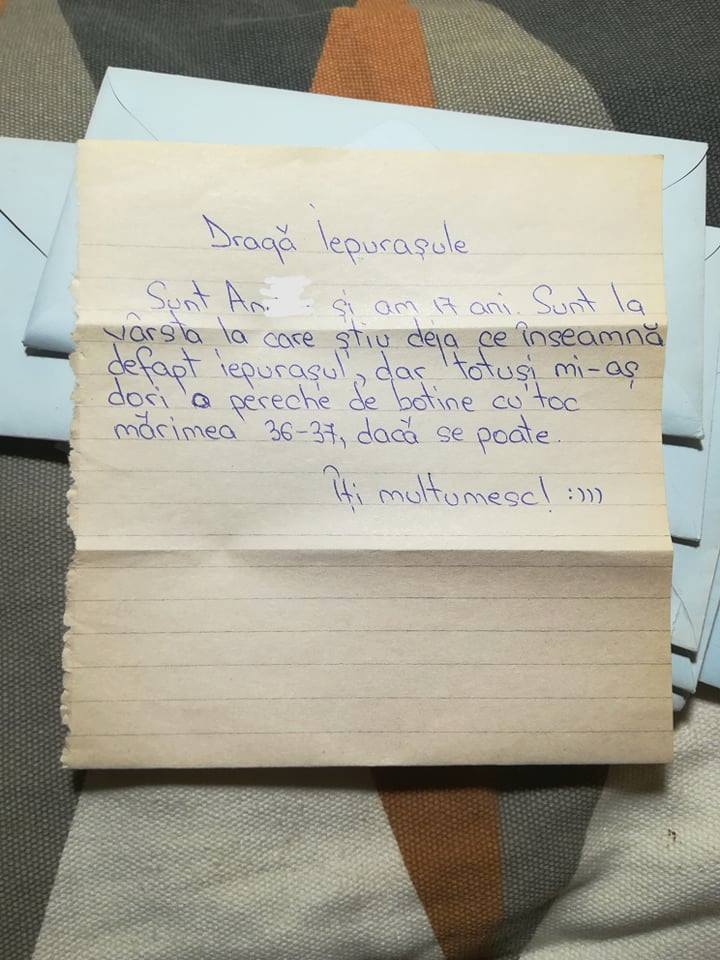 Dragă Iepurașule
Sunt An. și am 17 ani. Sunt la
vârsta la care știu deja ce înseamnă
defapt iepurașul, dar totuși mi-aș
dori o pereche de botine cu toc
mărimea 36-37, dacă se poate.
Îți multumesc! :))))